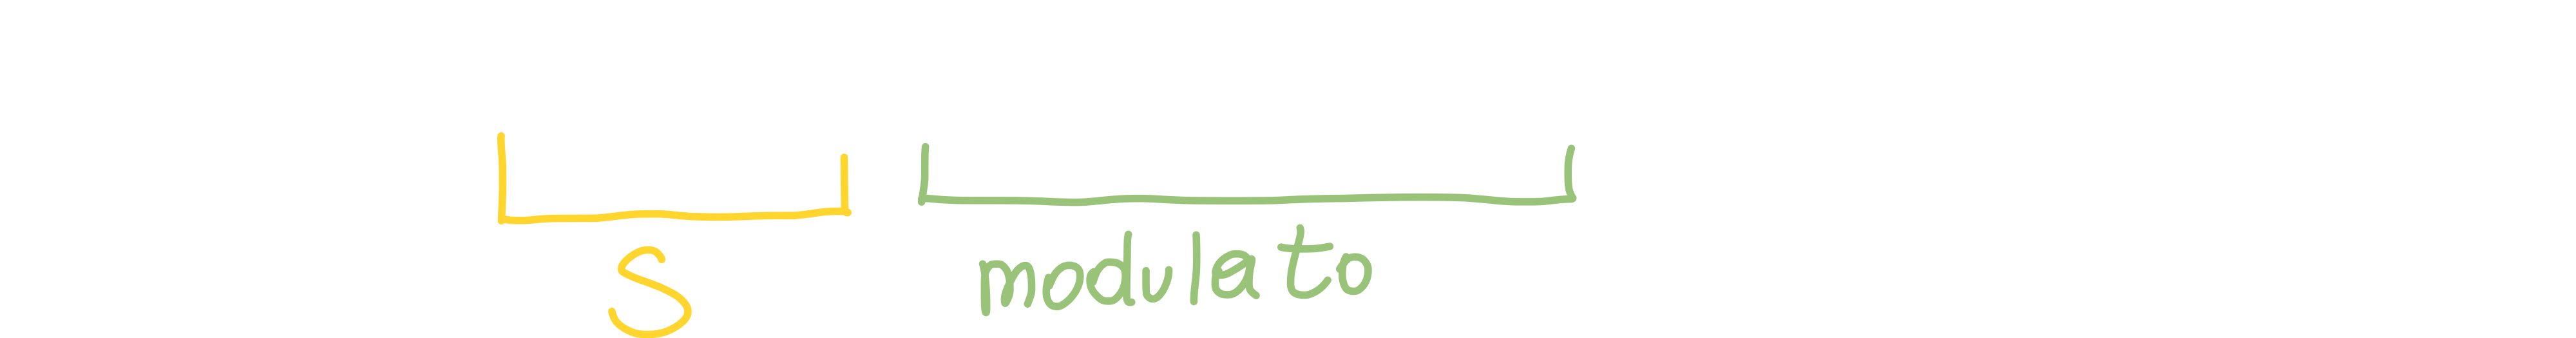 S modulato